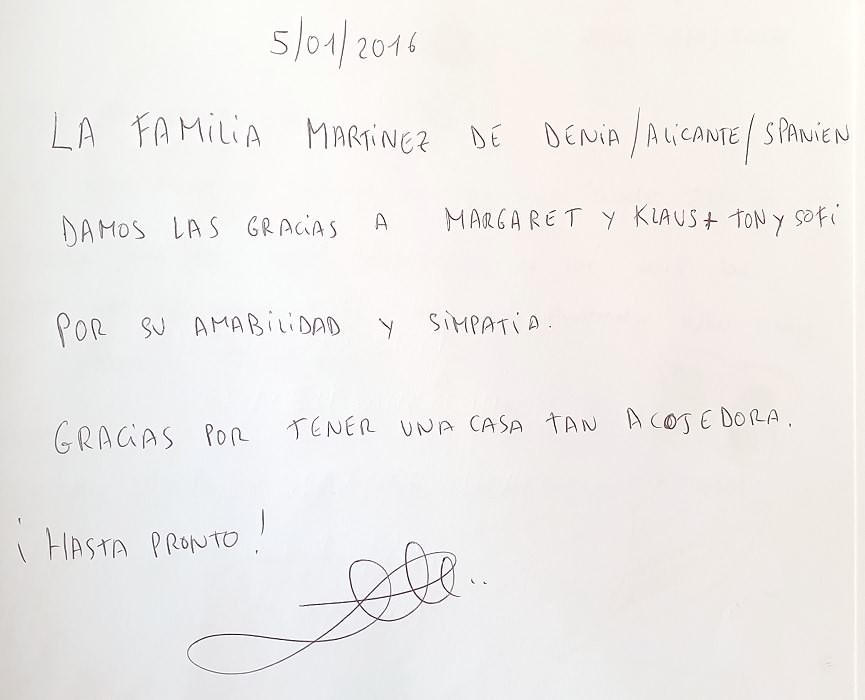 5/01/2016
LA FAMILIA MARTINEZ DE DENIA/ALICANTE/SPANIEN
DAMOS LAS GRACIAS A MARGARET Y KLAUS + TON Y SOFI
POR SU AMABILIDAD Y SIMPATIA.
GRACIAS POR TENER UNA CASA TAN ACOJEDORA.
¡HASTA PRONTO!